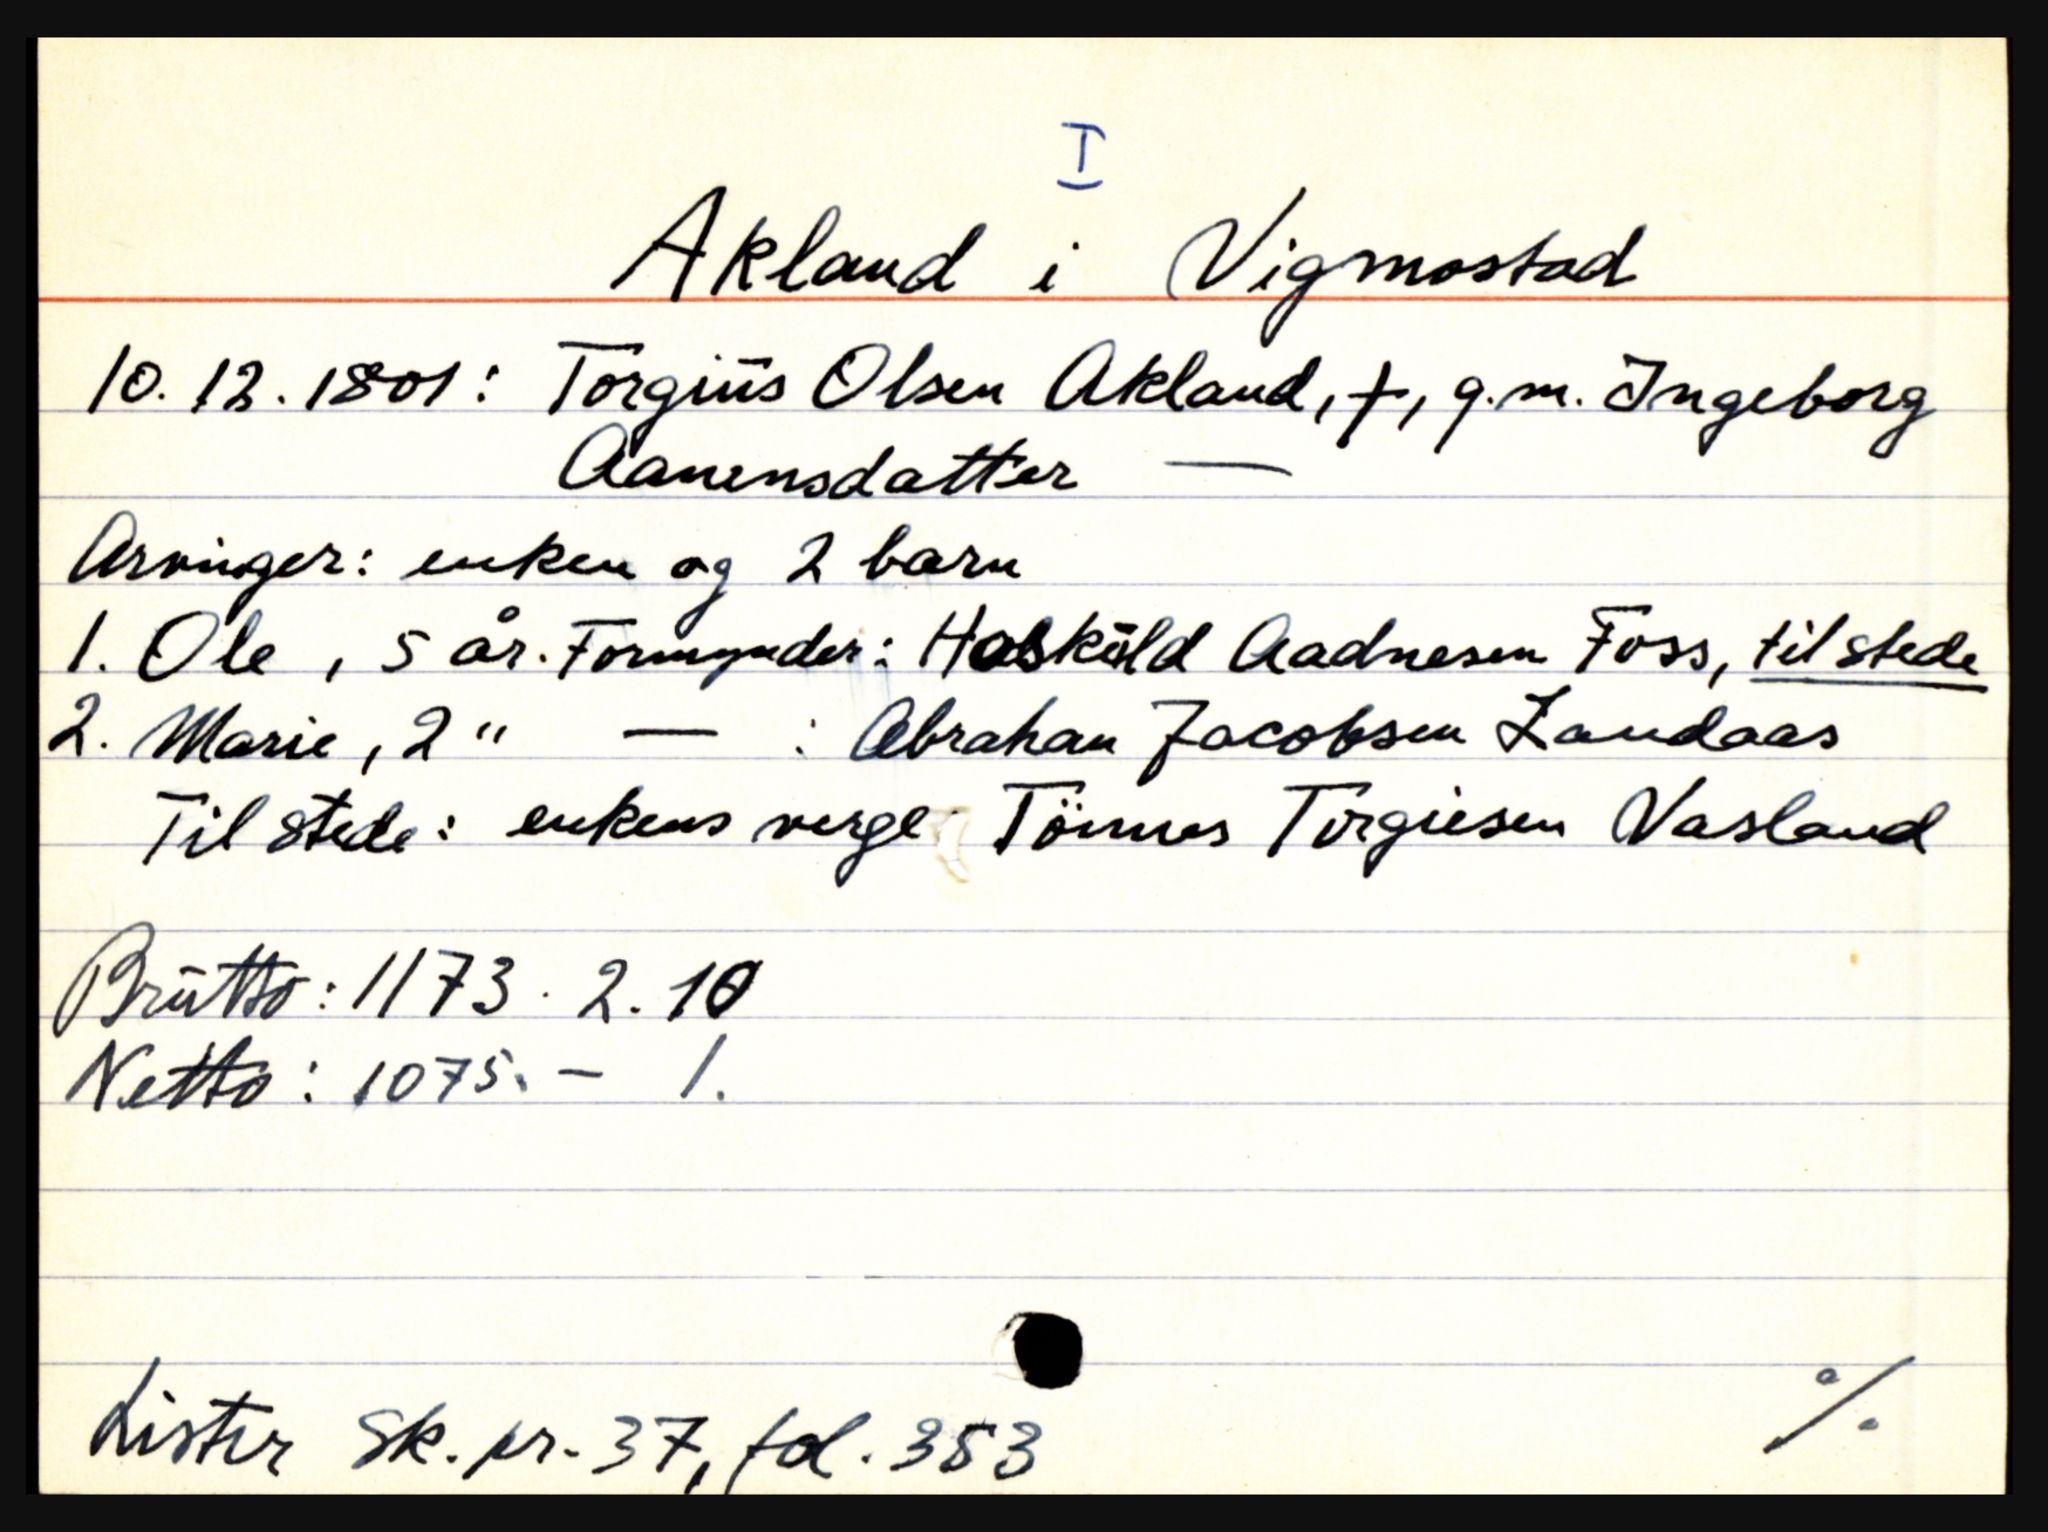 I
Akland i Vigmostad
10.12.1801: Torgiüs Olsen Akland, †, g.m. Ingeborg
Aanensdatter —
Arvinger: enken og 2 barn
1. Ole, 5 år. Formynder: Halsküld Aadnesen Foss, til stede
2. Marie, 2 " — : Abraham Jacobsen Landaas
Til stede: enkens verge Tönnes Torgiesen Vasland
Brütto: 1173. 2. 10
Netto: 1075. – 1.
Lister Sk.pr. 37, fol. 353
%